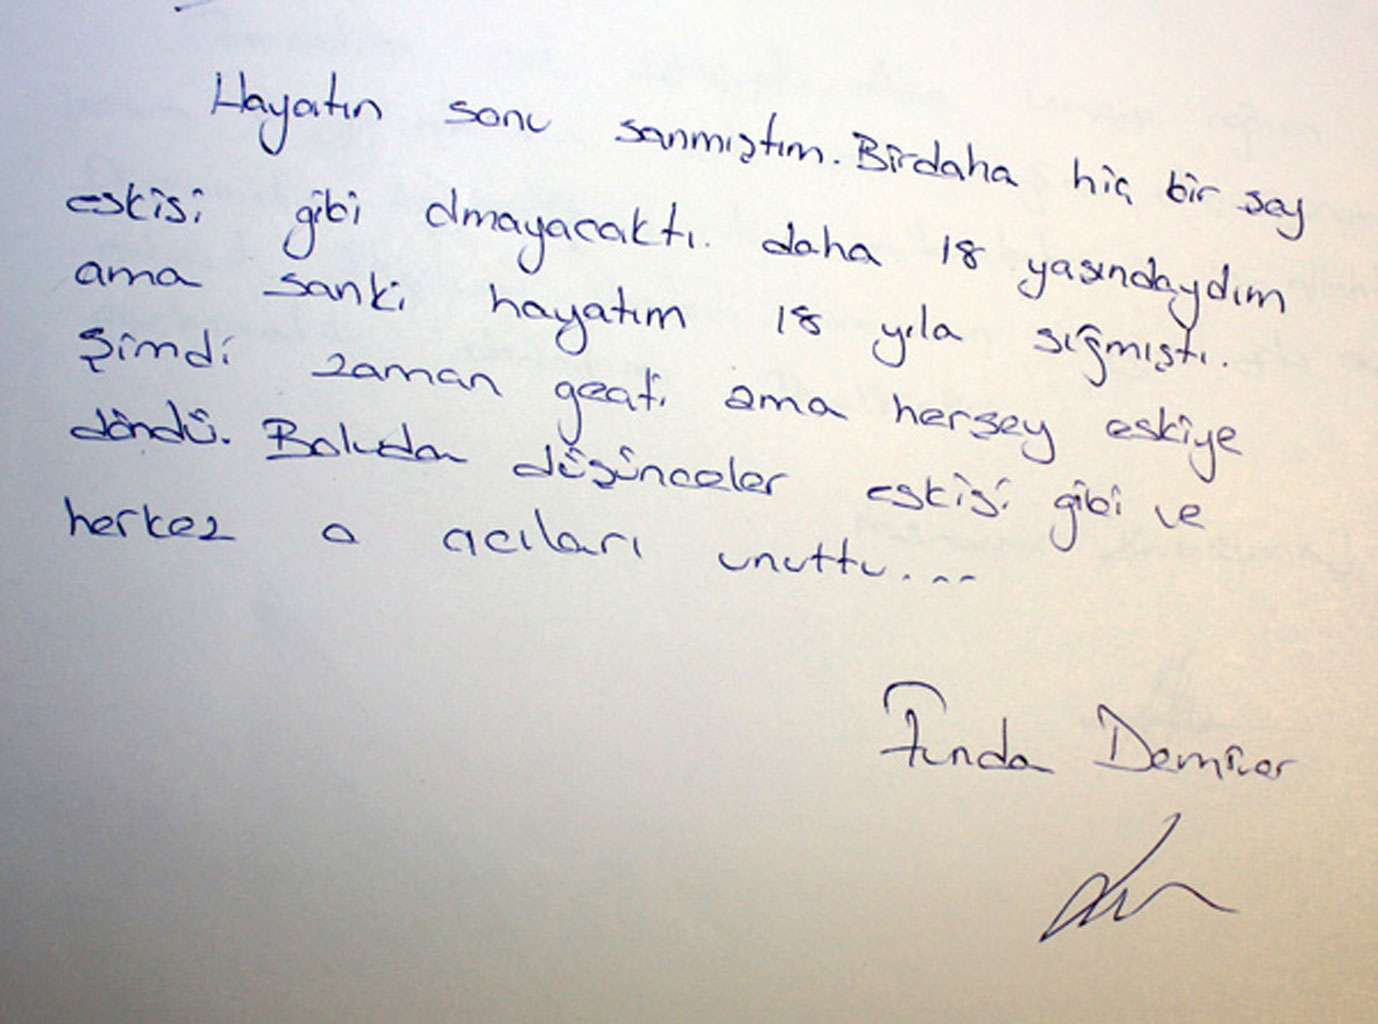 Hayatın sonu sanmıştım. Birdaha hiç bir şey
eskisi gibi olmayacaktı. daha 18 yaşındaydım
ama sanki hayatım 18 yıla sığmıştı.
Şimdi zaman geçti ama herşey eskiye
döndü. Boluda düşünceler eskisi gibi ve
herkez o acıları unuttu....
Funda Demirer